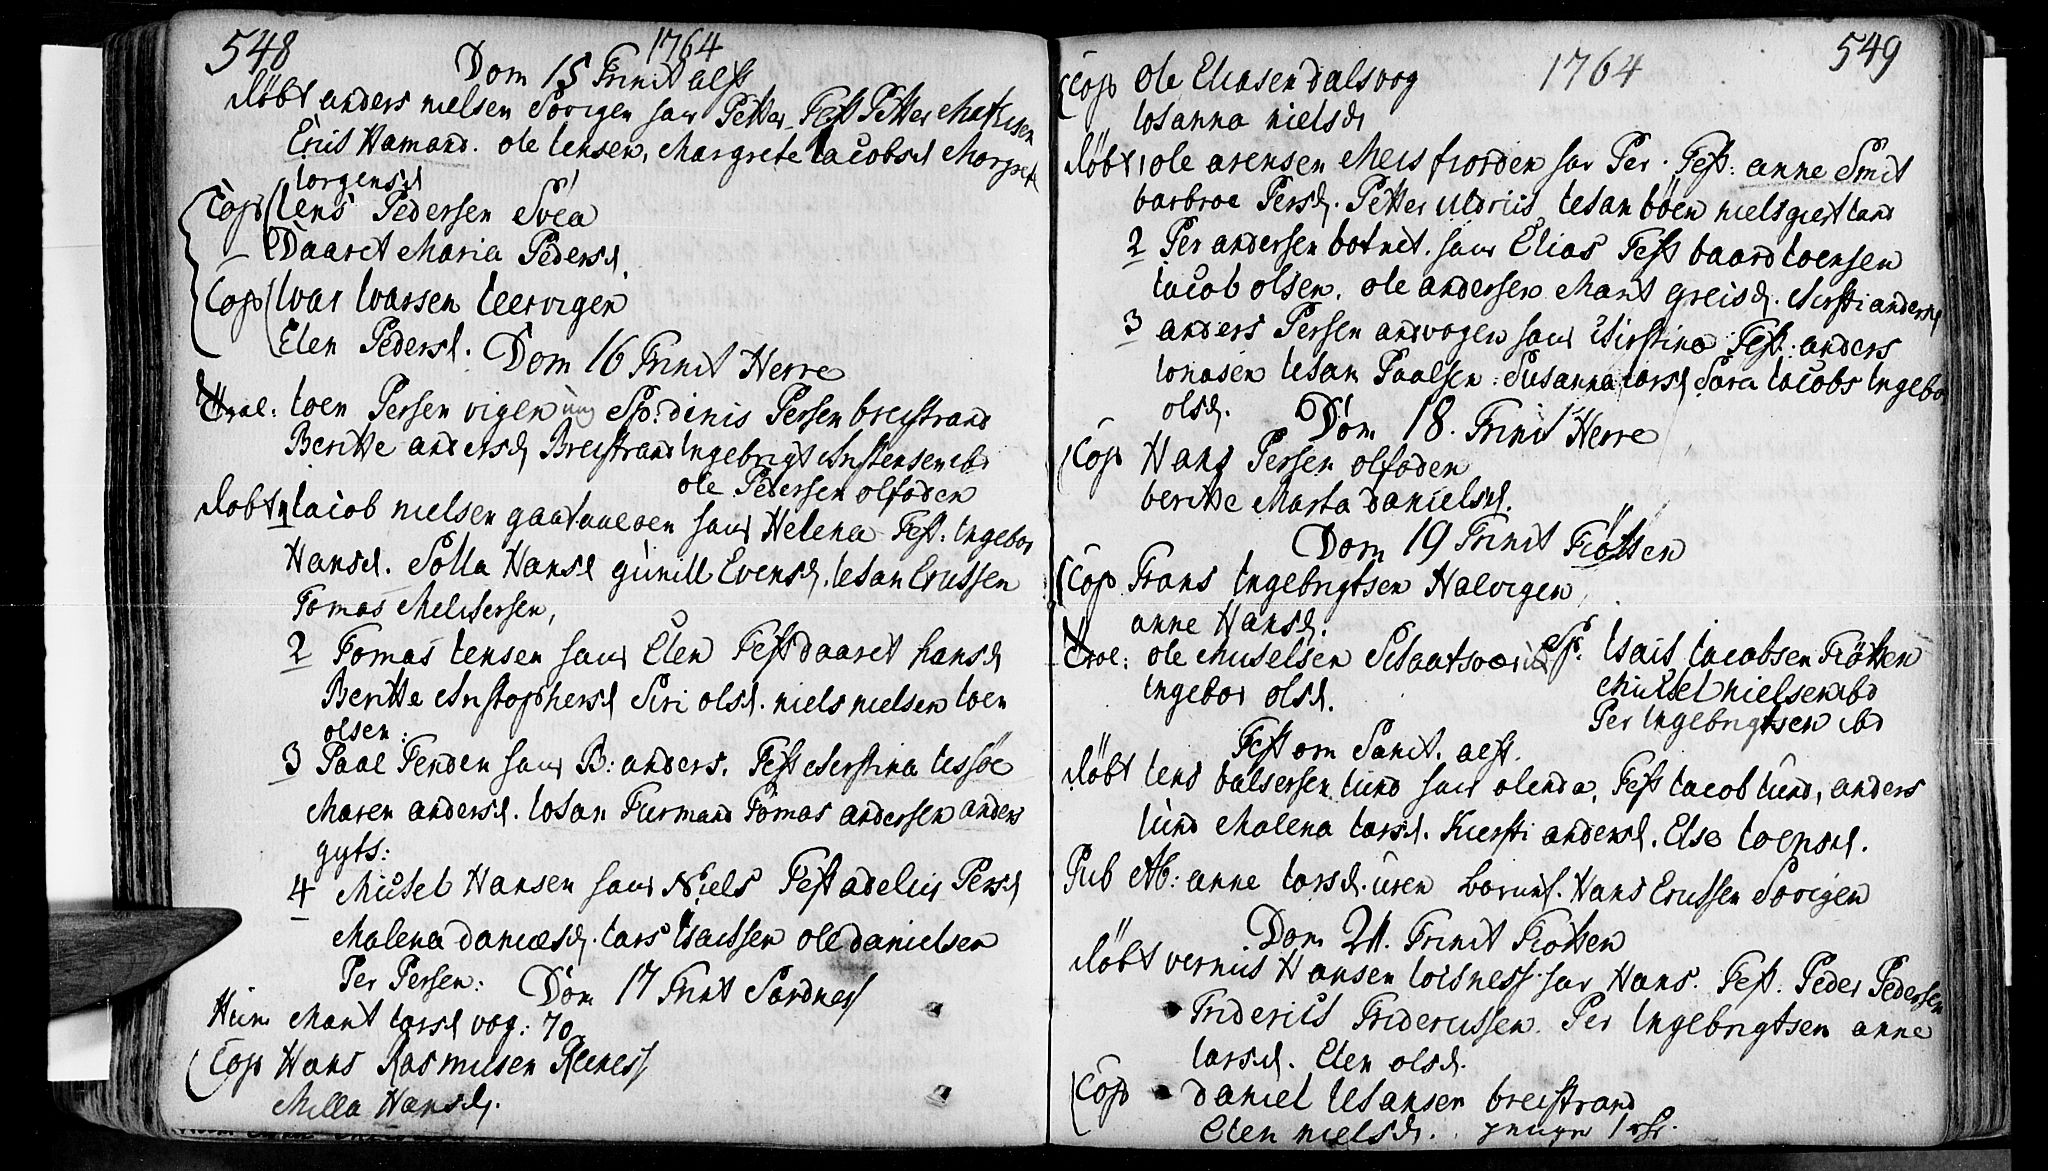 548
1764
Dom 15 Trinit alst
døbt anders nielsen Sørigen sav Petter Test Petter Matisen
Eris Hamand. ole Jensen, Margrete Jacobsd Margret
Jorgensd
Cop Jens Pedersen Svea
Daaret Maria Pedersd.
Cop Ivar Ivarsen Leervigen
Elen Pedersd.
Dom 16 Trinit Herre
Troel: Joen Persen vigen ung Sp: dinis Persen breistrand
Beritte andersd Breistrand Ingebrigt Christensen ibd
ole Pedersen olfoden
døbt 1 Jacob nielsen sav Helena Test: Ingebor
Hansd. Solla Hansd gunill Evensd. Johan Erissen
Tomas Meldersen,
2 Tomas Jensen sav Elen Test daaret hansd
Beritte Christophersd Siri olsd. niels nielsen Joen
olsen:
3 Paal Tenden sav B: anders. Test Christina Jessøe
Maren andersd. Johan Furmand Tomas andersen anders
gyts:
4 Mikel Hansen sav Niels Test adelus Persd
Malena danielsd. Lars Isacssen ole danielsen
Per Persen:
Dom 17 Trint Sordness
Hum Marit Larsd vog: 70
Cop Hans Rasmusen Reiness
Milla Hansd.
549
1764
Cop Ole Eliasen dalsvog
Josanna nielsd
døbt 1 ole arensen Meisfiorden sav Per. Test: anne Smit
barbroe Persd. Petter Uldriis Johan bøen niels giert land
2 Per andersen botnit. sav Elias Test baard Joensen
Jacob olsen. ole andersen Marit greisd. Kirsti andersd
3 anders Persen andvogen sav Kirstina Test: anders
Jonasen Johan Paalsen: Susanna Larsd Sara Jacobs Ingebor
olsd.
Dom 18. Trinit Herre
Cop Hans Persen olfoden
beritte Marta danielsd.
Dom 19 Trinit Fløtten
Cop Frans Ingebrigtsen Halvigen
anne Hansd.
Troel: ole Mikelsen Sp. Isak Jacobsen Fløtten
Ingebor olsd. Mikkel nielsen ibd
Per Ingebrigtsen ibd
Fest om Sanct. alst.
døbt Jens balsersen Lund sav olenda, Test Jacob Lund, anders
Lund Malena Larsd. Kiersti andersd. Else Joensd.
Pub Ab: anne Larsd. uren Barunf. Hans Erissen Sørigen
Dom 21. Trinit Fløtten
døbt vernus Hansen Leisness sav Hans. Test. Peder Pedersen
Friderich Fridericssen. Per Ingebrigtsen anne
Larsd. Elen olsd.
Cop daniel Johansen breistrand
Elen nielsd.